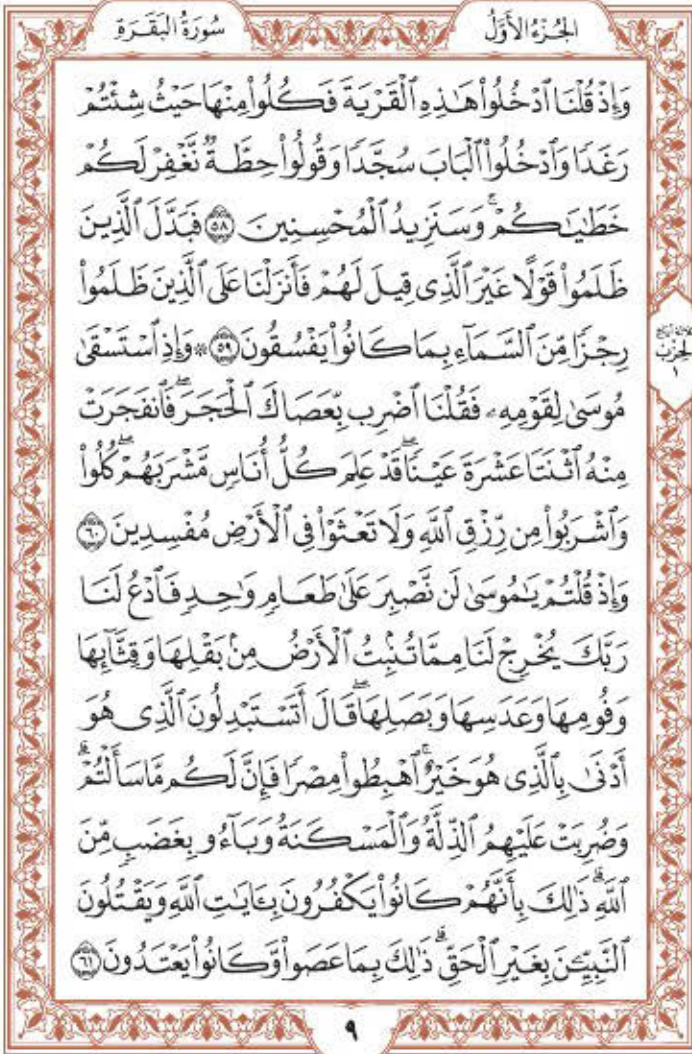 سُورَةُ البَقَرَةِ
الجُزْءُ الأَوَّلُ
وَإِذْ قُلْنَا ٱدْخُلُوا۟ هَـٰذِهِ ٱلْقَرْيَةَ فَكُلُوا۟ مِنْهَا حَيْثُ شِئْتُمْ
رَغَدًا وَٱدْخُلُوا۟ ٱلْبَابَ سُجَّدًا وَقُولُوا۟ حِطَّةٌ نَّغْفِرْ لَكُمْ
خَطَـٰيَـٰكُمْ ۚ وَسَنَزِيدُ ٱلْمُحْسِنِينَ ۝٥٨ فَبَدَّلَ ٱلَّذِينَ
ظَلَمُوا۟ قَوْلًا غَيْرَ ٱلَّذِى قِيلَ لَهُمْ فَأَنزَلْنَا عَلَى ٱلَّذِينَ ظَلَمُوا۟
رِجْزًا مِّنَ ٱلسَّمَآءِ بِمَا كَانُوا۟ يَفْسُقُونَ ۝٥٩ ۞ وَإِذِ ٱسْتَسْقَىٰ
مُوسَىٰ لِقَوْمِهِۦ فَقُلْنَا ٱضْرِب بِّعَصَاكَ ٱلْحَجَرَ ۖ فَٱنفَجَرَتْ
مِنْهُ ٱثْنَتَا عَشْرَةَ عَيْنًا ۖ قَدْ عَلِمَ كُلُّ أُنَاسٍ مَّشْرَبَهُمْ ۖ كُلُوا۟
وَٱشْرَبُوا۟ مِن رِّزْقِ ٱللَّهِ وَلَا تَعْثَوْا۟ فِى ٱلْأَرْضِ مُفْسِدِينَ ۝٦٠
وَإِذْ قُلْتُمْ يَـٰمُوسَىٰ لَن نَّصْبِرَ عَلَىٰ طَعَامٍ وَٰحِدٍ فَٱدْعُ لَنَا
رَبَّكَ يُخْرِجْ لَنَا مِمَّا تُنۢبِتُ ٱلْأَرْضُ مِنۢ بَقْلِهَا وَقِثَّآئِهَا
وَفُومِهَا وَعَدَسِهَا وَبَصَلِهَا ۖ قَالَ أَتَسْتَبْدِلُونَ ٱلَّذِى هُوَ
أَدْنَىٰ بِٱلَّذِى هُوَ خَيْرٌ ۚ ٱهْبِطُوا۟ مِصْرًا فَإِنَّ لَكُم مَّا سَأَلْتُمْ ۗ
وَضُرِبَتْ عَلَيْهِمُ ٱلذِّلَّةُ وَٱلْمَسْكَنَةُ وَبَآءُو بِغَضَبٍ مِّنَ
ٱللَّهِ ۗ ذَٰلِكَ بِأَنَّهُمْ كَانُوا۟ يَكْفُرُونَ بِـَٔايَـٰتِ ٱللَّهِ وَيَقْتُلُونَ
ٱلنَّبِيِّـۧنَ بِغَيْرِ ٱلْحَقِّ ۗ ذَٰلِكَ بِمَا عَصَوا۟ وَّكَانُوا۟ يَعْتَدُونَ ۝٦١
الحِزْبُ
١
٩